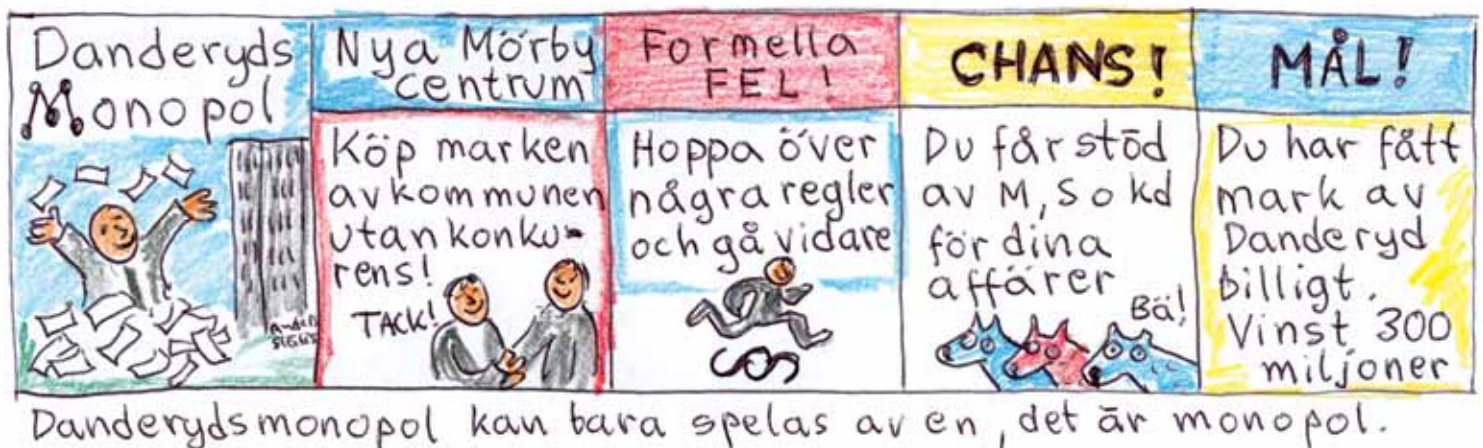 Danderyds
Monopol
ANDERS
Nya Mörby
centrum
Köp marken
av kommunen
utan konku-
rens!
TACK!
Formella
FEL!
Hoppa över
några regler
och gå vidare
§
CHANS!
Du får stöd
av M, S o kd
för dina
affärer
Bä!
MÅL!
Du har fått
mark av
Danderyd
billigt.
Vinst 300
miljoner
Danderydsmonopol kan bara spelas av en, det är monopol.